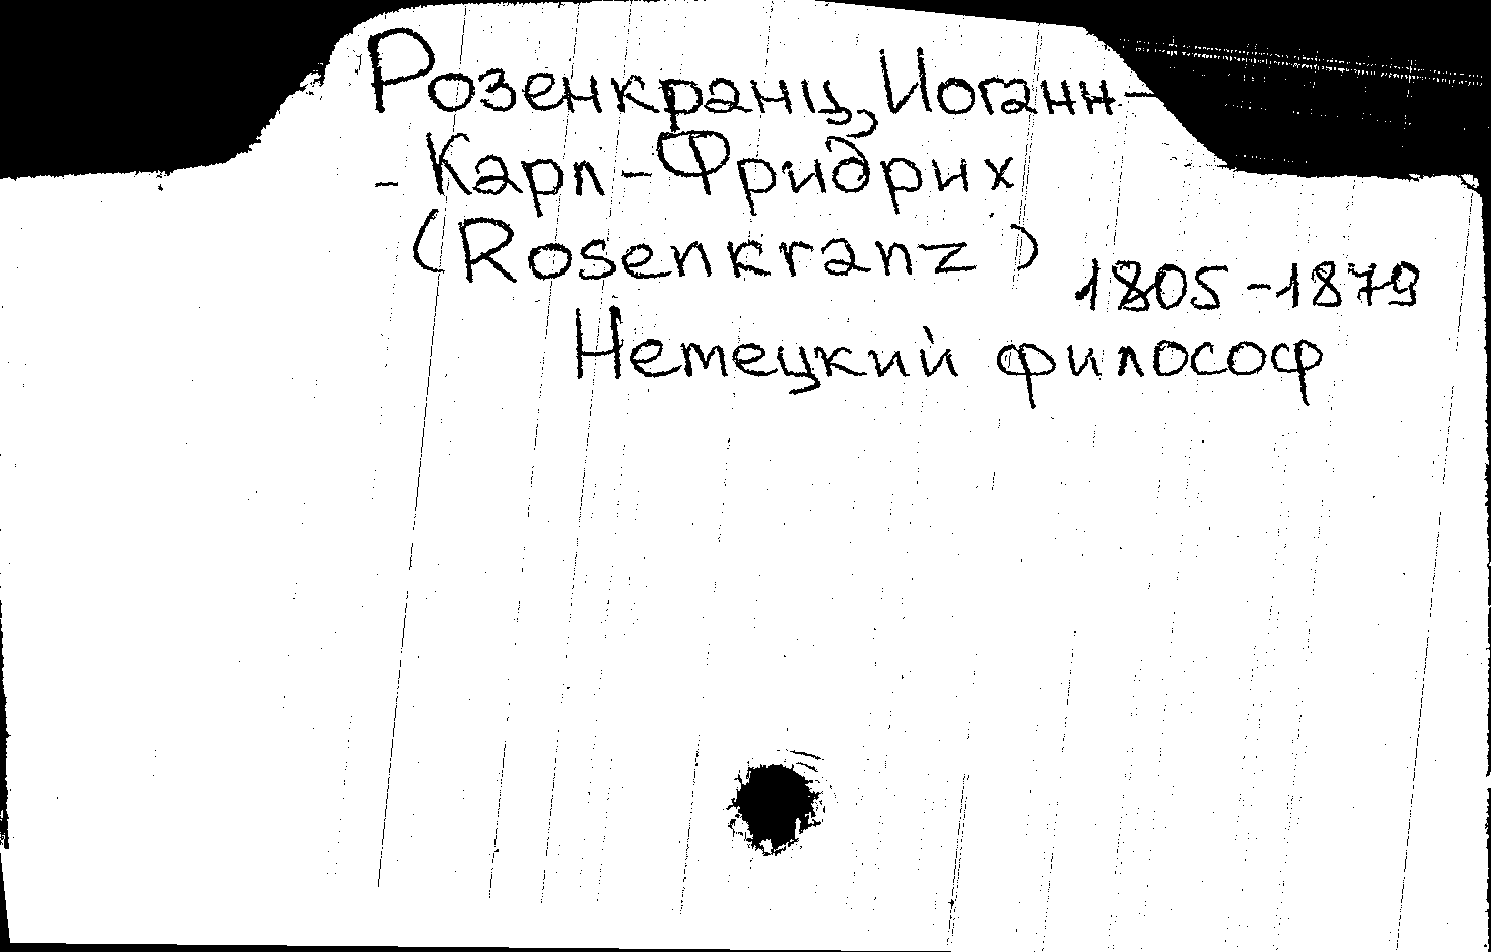 Розенкранц, Иоганн-
- Карл - Фридрих
(Rosenkranz)
1805-1879
Немецкий философ